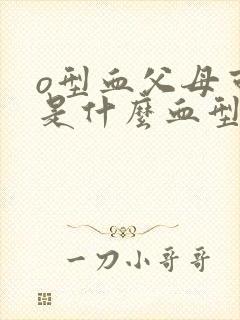 o型血父母可
是什麼血型
一刀小哥哥